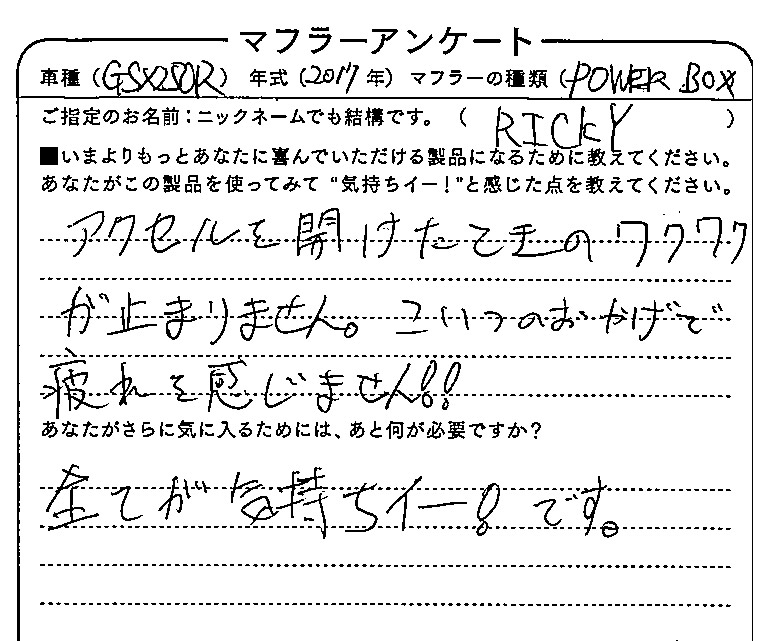 マフラーアンケート
車種（GSX250R）年式（2017年）マフラーの種類（POWER BOX
ご指定のお名前：ニックネームでも結構です。（RICKY）
■いまよりもっとあなたに喜んでいただける製品になるために教えてください。
あなたがこの製品を使ってみて“気持ちイー！”と感じた点を教えてください。
アクセルを開けたときのワクワク
が止まりません。こいつのおかげで
疲れを感じません!!
あなたがさらに気に入るためには、あと何が必要ですか？
全てが気持ちイー！です。